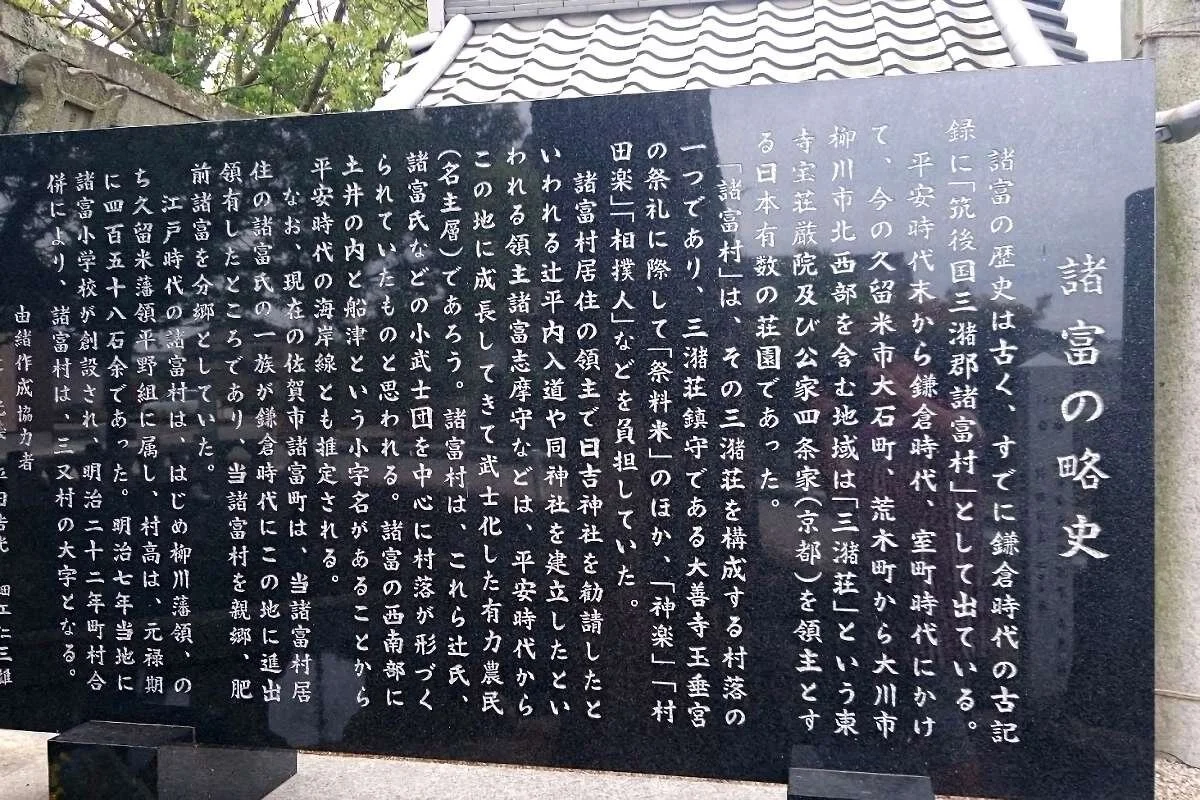 諸富の略史
諸富の歴史は古く、すでに鎌倉時代の古記
録に「筑後国三潴郡諸富村」として出ている。
平安時代末から鎌倉時代、室町時代にかけ
て、今の久留米市大石町、荒木町から大川市
柳川市北西部を含む地域は「三潴荘」という東
寺宝荘厳院及び公家四条家(京都)を領主とす
る日本有数の荘園であった。
「諸富村」は、その三潴荘を構成する村落の
一つであり、三潴荘鎮守である大善寺玉垂宮
の祭礼に際して「祭料米」のほか、「神楽」「村
田楽」「相撲人」などを負担していた。
諸富村居住の領主で日吉神社を勧請したと
いわれる辻平内入道や同神社を建立したとい
われる領主諸富志摩守などは、平安時代から
この地に成長してきて武士化した有力農民
(名主層)であろう。諸富村は、これら辻氏、
諸富氏などの小武士団を中心に村落が形づく
られていたものと思われる。諸富の西南部に
土井の内と船津という小字名があることから
平安時代の海岸線とも推定される。
なお、現在の佐賀市諸富町は、当諸富村居
住の諸富氏の一族が鎌倉時代にこの地に進出
領有したところであり、当諸富村を親郷、肥
前諸富を分郷としていた。
江戸時代の諸富村は、はじめ柳川藩領、の
ち久留米藩領平野組に属し、村高は、元禄期
に四百五十八石余であった。明治七年当地に
諸富小学校が創設され、明治二十二年町村合
併により、諸富村は、三又村の大字となる。
由緒作成協力者